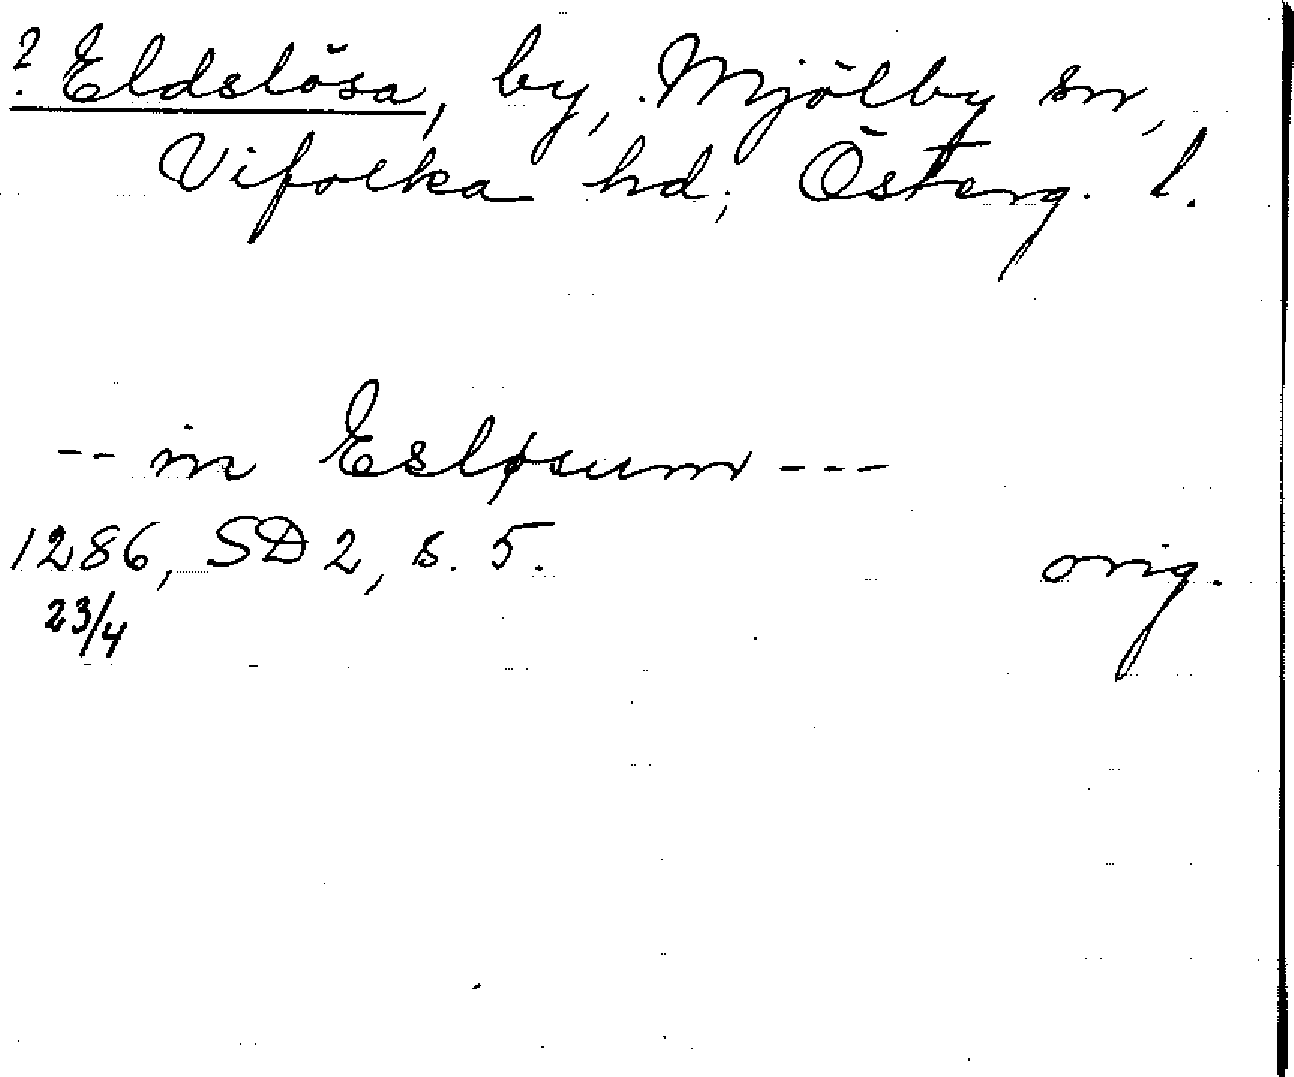 ? Eldslösa, by, Mjölby sn,
Vifolka hd, Österg. l.
-- in Esløsum ---
1286, SD 2, s. 5. orig.
23/4